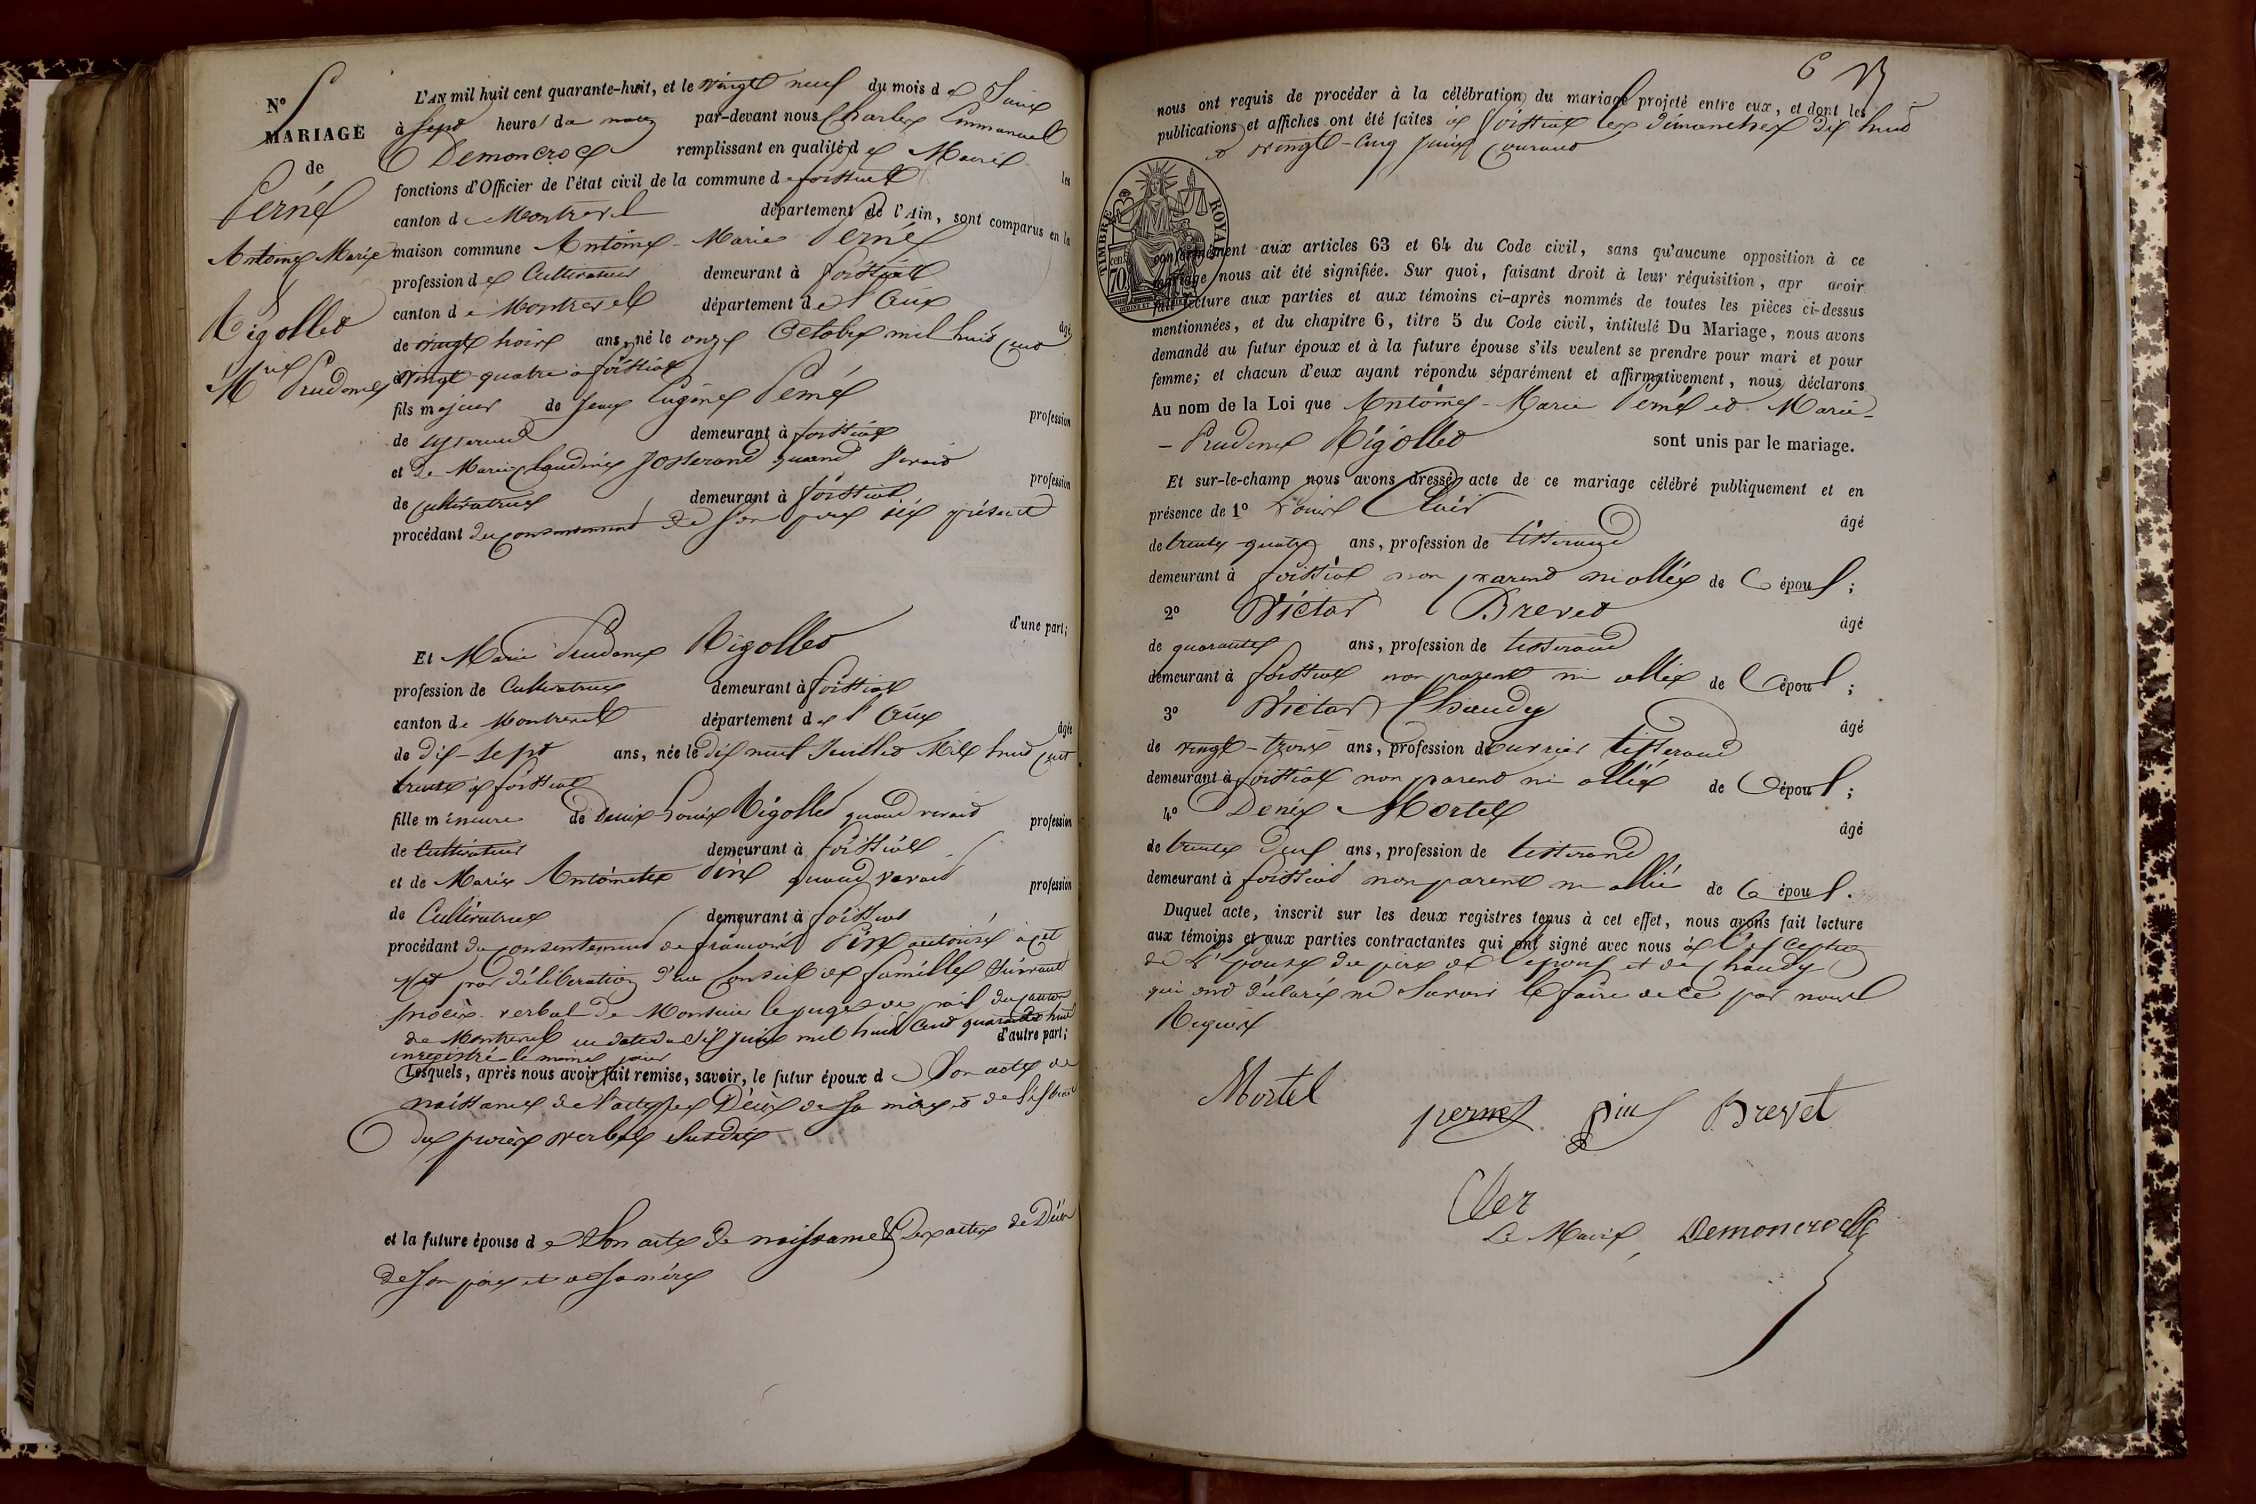 N°
MARIAGE
de
Perné
Antoine Marie
&
Rigollet
Prudence
L'AN mil huit cent quarante-huit, et le vingt neuf du mois de Juin
à sept heures du matin par-devant nous Charles Emmanuel
Demoncroc remplissant en qualité de Maire les
fonctions d'Officier de l'état civil de la commune de foissiat
canton de Montrevel département de l'Ain, sont comparus en la
maison commune Antoine-Marie Perné
profession de Cultivateur demeurant à foissiat
canton de Montrevel département de l'Ain âgé
de vingt trois ans, né le onze Octobre mil huit cent
vingt-quatre à foissiat
fils majeur de Jean Eugène Perné profession
de tisserand demeurant à foissiat
et de Marie Claudine Josserand quand vivait profession
de cultivatrice demeurant à foissiat
procédant du consentement de son père ici présent
d'une part;
Et Marie Prudence Rigollet
profession de Cultivatrice demeurant à foissiat
canton de Montrevel département de l'Ain âgée
de dix-sept ans, née le dix neuf Juillet mil huit cent
trente à foissiat
fille mineure de Denis Louis Rigollet quand vivait profession
de Cultivateur demeurant à foissiat
et de Marie Antoinette Pin quand vivait profession
de Cultivatrice demeurant à foissiat
procédant du consentement de françois Pin autorisé à cet
par délibération d'un Conseil de famille suivant
procès verbal de Monsieur le juge de paix du canton
de Montrevel en date du dix juin mil huit cent quarante huit
enregistré le même jour d'autre part;
Lesquels, après nous avoir fait remise, savoir, le futur époux de Son acte de
naissance de l'acte de Décès de sa mère et de
du procès verbal susdit
et la future épouse de Son acte de naissance & Des actes de Décès
de son père et de sa mère
6
nous ont requis de procéder à la célébration du mariage projeté entre eux, et dont les
publications et affiches ont été faites à foissiat les dimanches dix huit
et vingt-cinq juin courant
TIMBRE ROYAL
70
conformément aux articles 63 et 64 du Code civil, sans qu'aucune opposition à ce
mariage nous ait été signifiée. Sur quoi, faisant droit à leur réquisition, apr avoir
fait lecture aux parties et aux témoins ci-après nommés de toutes les pièces ci-dessus
mentionnées, et du chapitre 6, titre 5 du Code civil, intitulé Du Mariage, nous avons
demandé au futur époux et à la future épouse s'ils veulent se prendre pour mari et pour
femme; et chacun d'eux ayant répondu séparément et affirmativement, nous déclarons
Au nom de la Loi que Antoine-Marie Perné et Marie-
-Prudence Rigollet sont unis par le mariage.
Et sur-le-champ nous avons dressé acte de ce mariage célébré publiquement et en
présence de 1° Louis Clair âgé
de trente-quatre ans, profession de tisserand
demeurant à foissiat non parent ni allié de l'époux;
2° Victor Brevet âgé
de quarante ans, profession de tisserand
demeurant à foissiat non parent ni allié de l'époux;
3° Victor Chaudy âgé
de vingt-trois ans, profession d'ouvrier tisserand
demeurant à foissiat non parent ni allié de l'époux;
4° Denis Mortel âgé
de trente deux ans, profession de tisserand
demeurant à foissiat non parent ni allié de l'époux.
Duquel acte, inscrit sur les deux registres tenus à cet effet, nous avons fait lecture
aux témoins et aux parties contractantes qui ont signé avec nous à l'exception
de l'épouse du père de l'époux et de Chaudy
qui ont déclaré ne savoir le faire de ce par nous
Requis
Mortel
pernet pin Brevet
Cler
Le Maire, Demoncroc